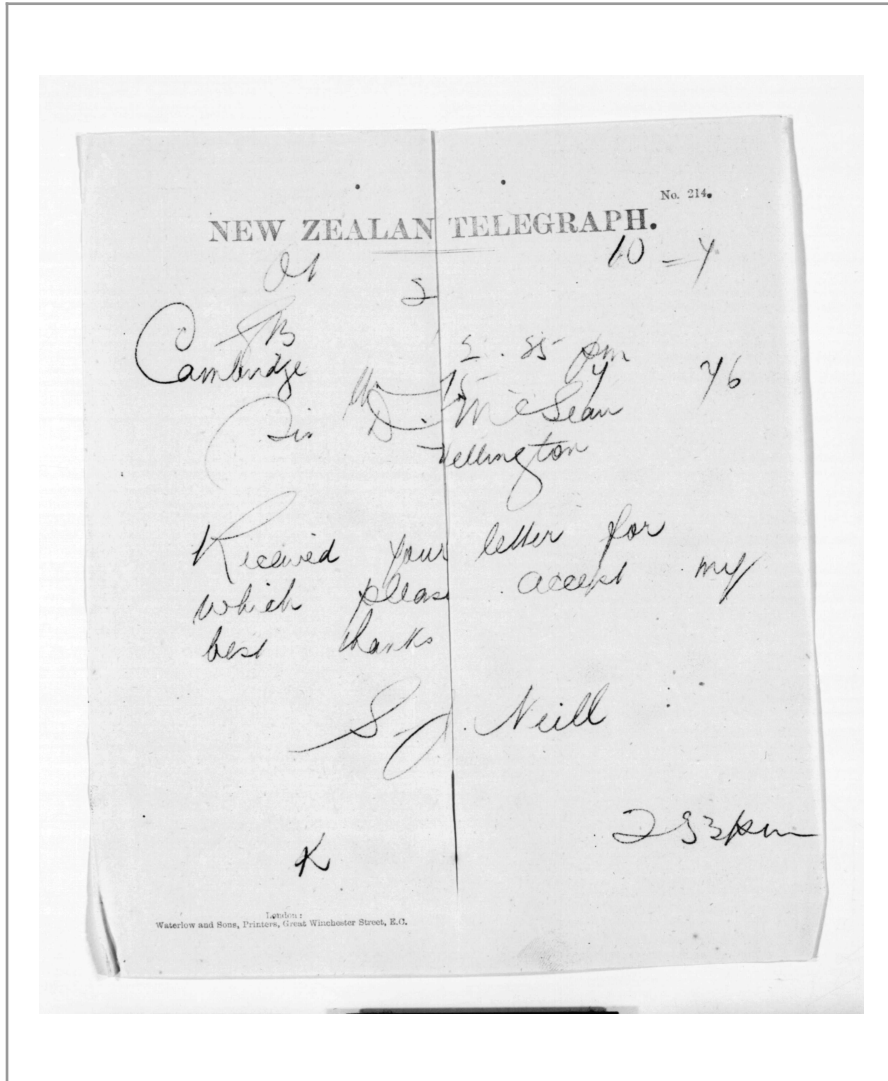 No. 214.
NEW ZEALAN TELEGRAPH.
10 - 4
2
Cambridge
2. 35 pm
76
Sir D. McLean
Wellington
Received your letter for
which please accept my
best thanks
S. J. Neill
K
2 53 pm
London:
Waterlow and Sons, Printers, Great Winchester Street, E.C.